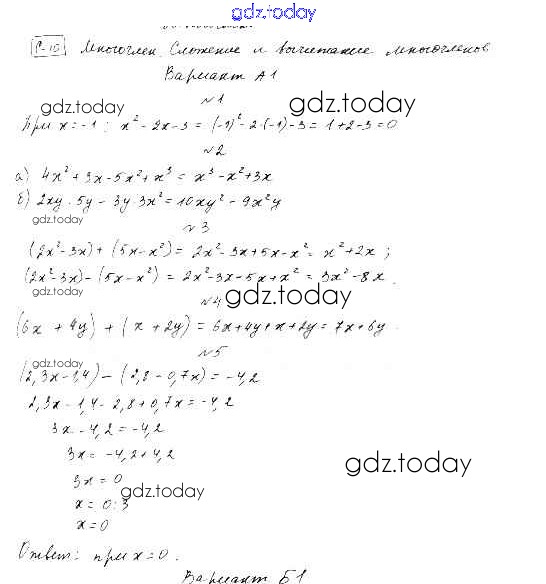 gdz.today
С-10 Многочлен. Сложение и вычитание многочленов
Вариант А1
№1
gdz.today gdz.today
При x=-1: x²-2x-3=(-1)²-2·(-1)-3=1+2-3=0
№2
а) 4x²+3x-5x²+x³=x³-x²+3x
б) 2xy·5y-3y·3x²=10xy²-9x²y
gdz.today
№3
(2x²-3x)+(5x-x²)=2x²-3x+5x-x²=x²+2x;
(2x²-3x)-(5x-x²)=2x²-3x-5x+x²=3x²-8x.
gdz.today
№4 gdz.today
(6x+4y)+(x+2y)=6x+4y+x+2y=7x+6y.
№5
gdz.today
(2,3x-1,4)-(2,8-0,7x)=-4,2
2,3x-1,4-2,8+0,7x=-4,2
3x-4,2=-4,2
3x=-4,2+4,2
gdz.today
3x=0
gdz.today
x=0:3
x=0
Ответ: при x=0.
Вариант Б1